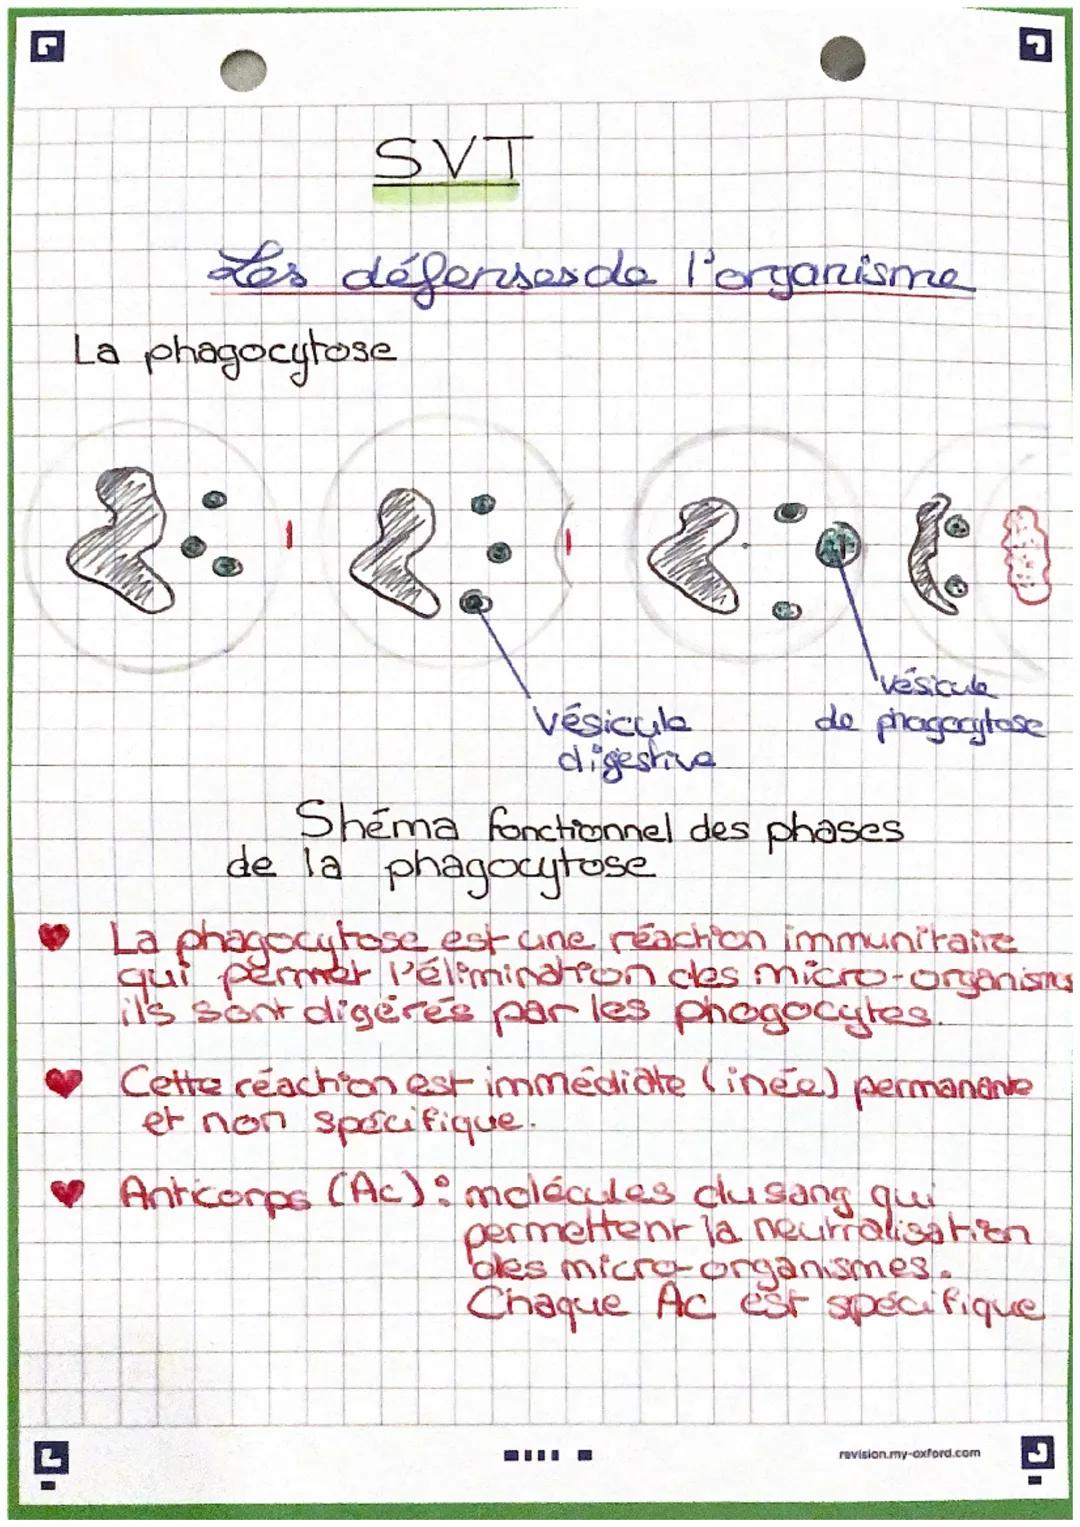 SVT
Les défenses de l'organisme
La phagocytose
vésicule
de phagocytose
vésicule
digestive
Shéma fonctionnel des phases
de la phagocytose
La phagocytose est une réaction immunitaire
qui permet l'élimination des micro-organismes
ils sont digérés par les phagocytes.
Cette réaction est immédiate (inée) permanante
et non spécifique.
Anticorps (Ac): molécules du sang qui
permettent la neutralisation
des micro-organismes.
Chaque Ac est spécifique
revision.my-oxford.com